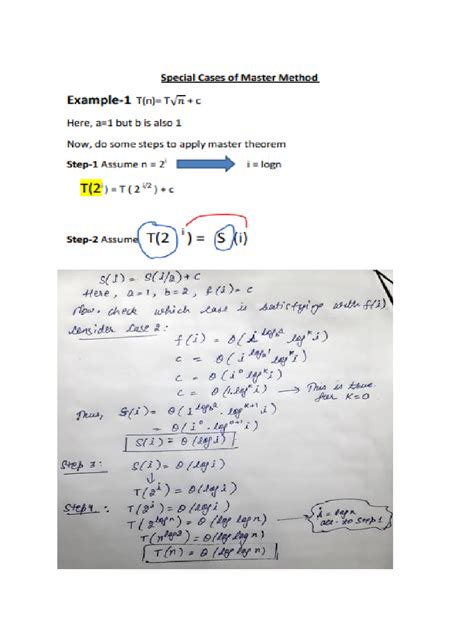 Special Cases of Master Method
Example-1 T(n)= T√n + c
Here, a=1 but b is also 1
Now, do some steps to apply master theorem
Step-1 Assume n = 2^i i = logn
T(2^i) = T ( 2^(i/2) ) + c
Step-2 Assume T(2^i) = S (i)
S(i) = S(i/2)+C
Here, a=1, b=2, f(i)=c
Now, check which case is satisfying with f(i)
Consider Case 2:
f(i) = θ(i^(log_b a) log^k i)
c = θ(i^(log_2 1) log^k i)
c = θ(i^0 log^k i)
c = θ(1.log^k i) → This is true
for K=0
Thus, S(i) = θ(i^(log_b a) . log^(k+1) i)
= θ(i^0 . log^(0+1) i)
S(i) = θ(log i)
Step 3: S(i) = θ(log i)
↓
T(2^i) = θ(log i)
Step 4: T(2^i) = θ(log i)
T(2^(logn)) = θ(log logn)
i = logn
acc. to Step 1
T(n^(log2)) = θ(log logn)
T(n) = θ(log logn)